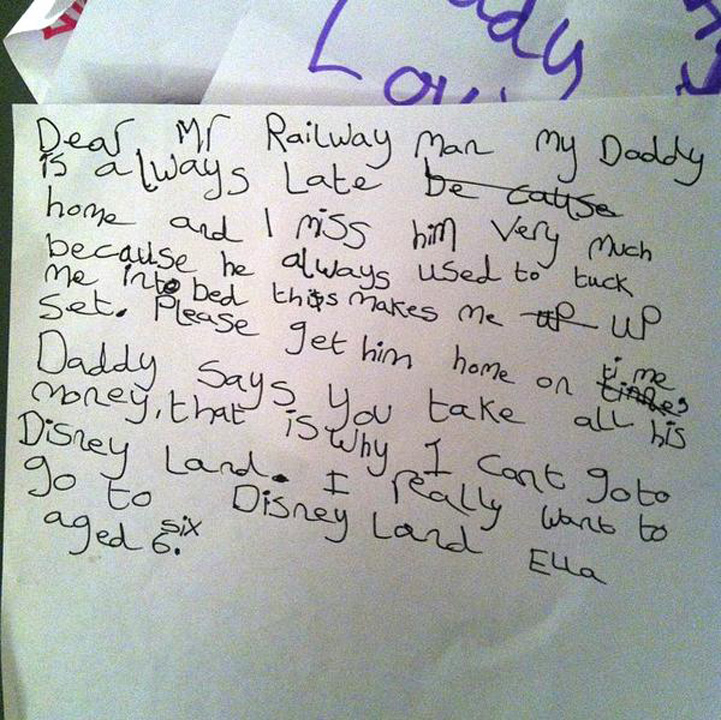 addy
Lov
Dear Mr Railway Man My Daddy
is always Late be cause
home and I miss him Very Much
because he always used to tuck
me into bed this makes me up UP
set. Please get him home on time
times
Daddy says you take all his
money, that is why I cant go to
Disney Land. I really want to
go to Disney Land Ella
aged 6. six